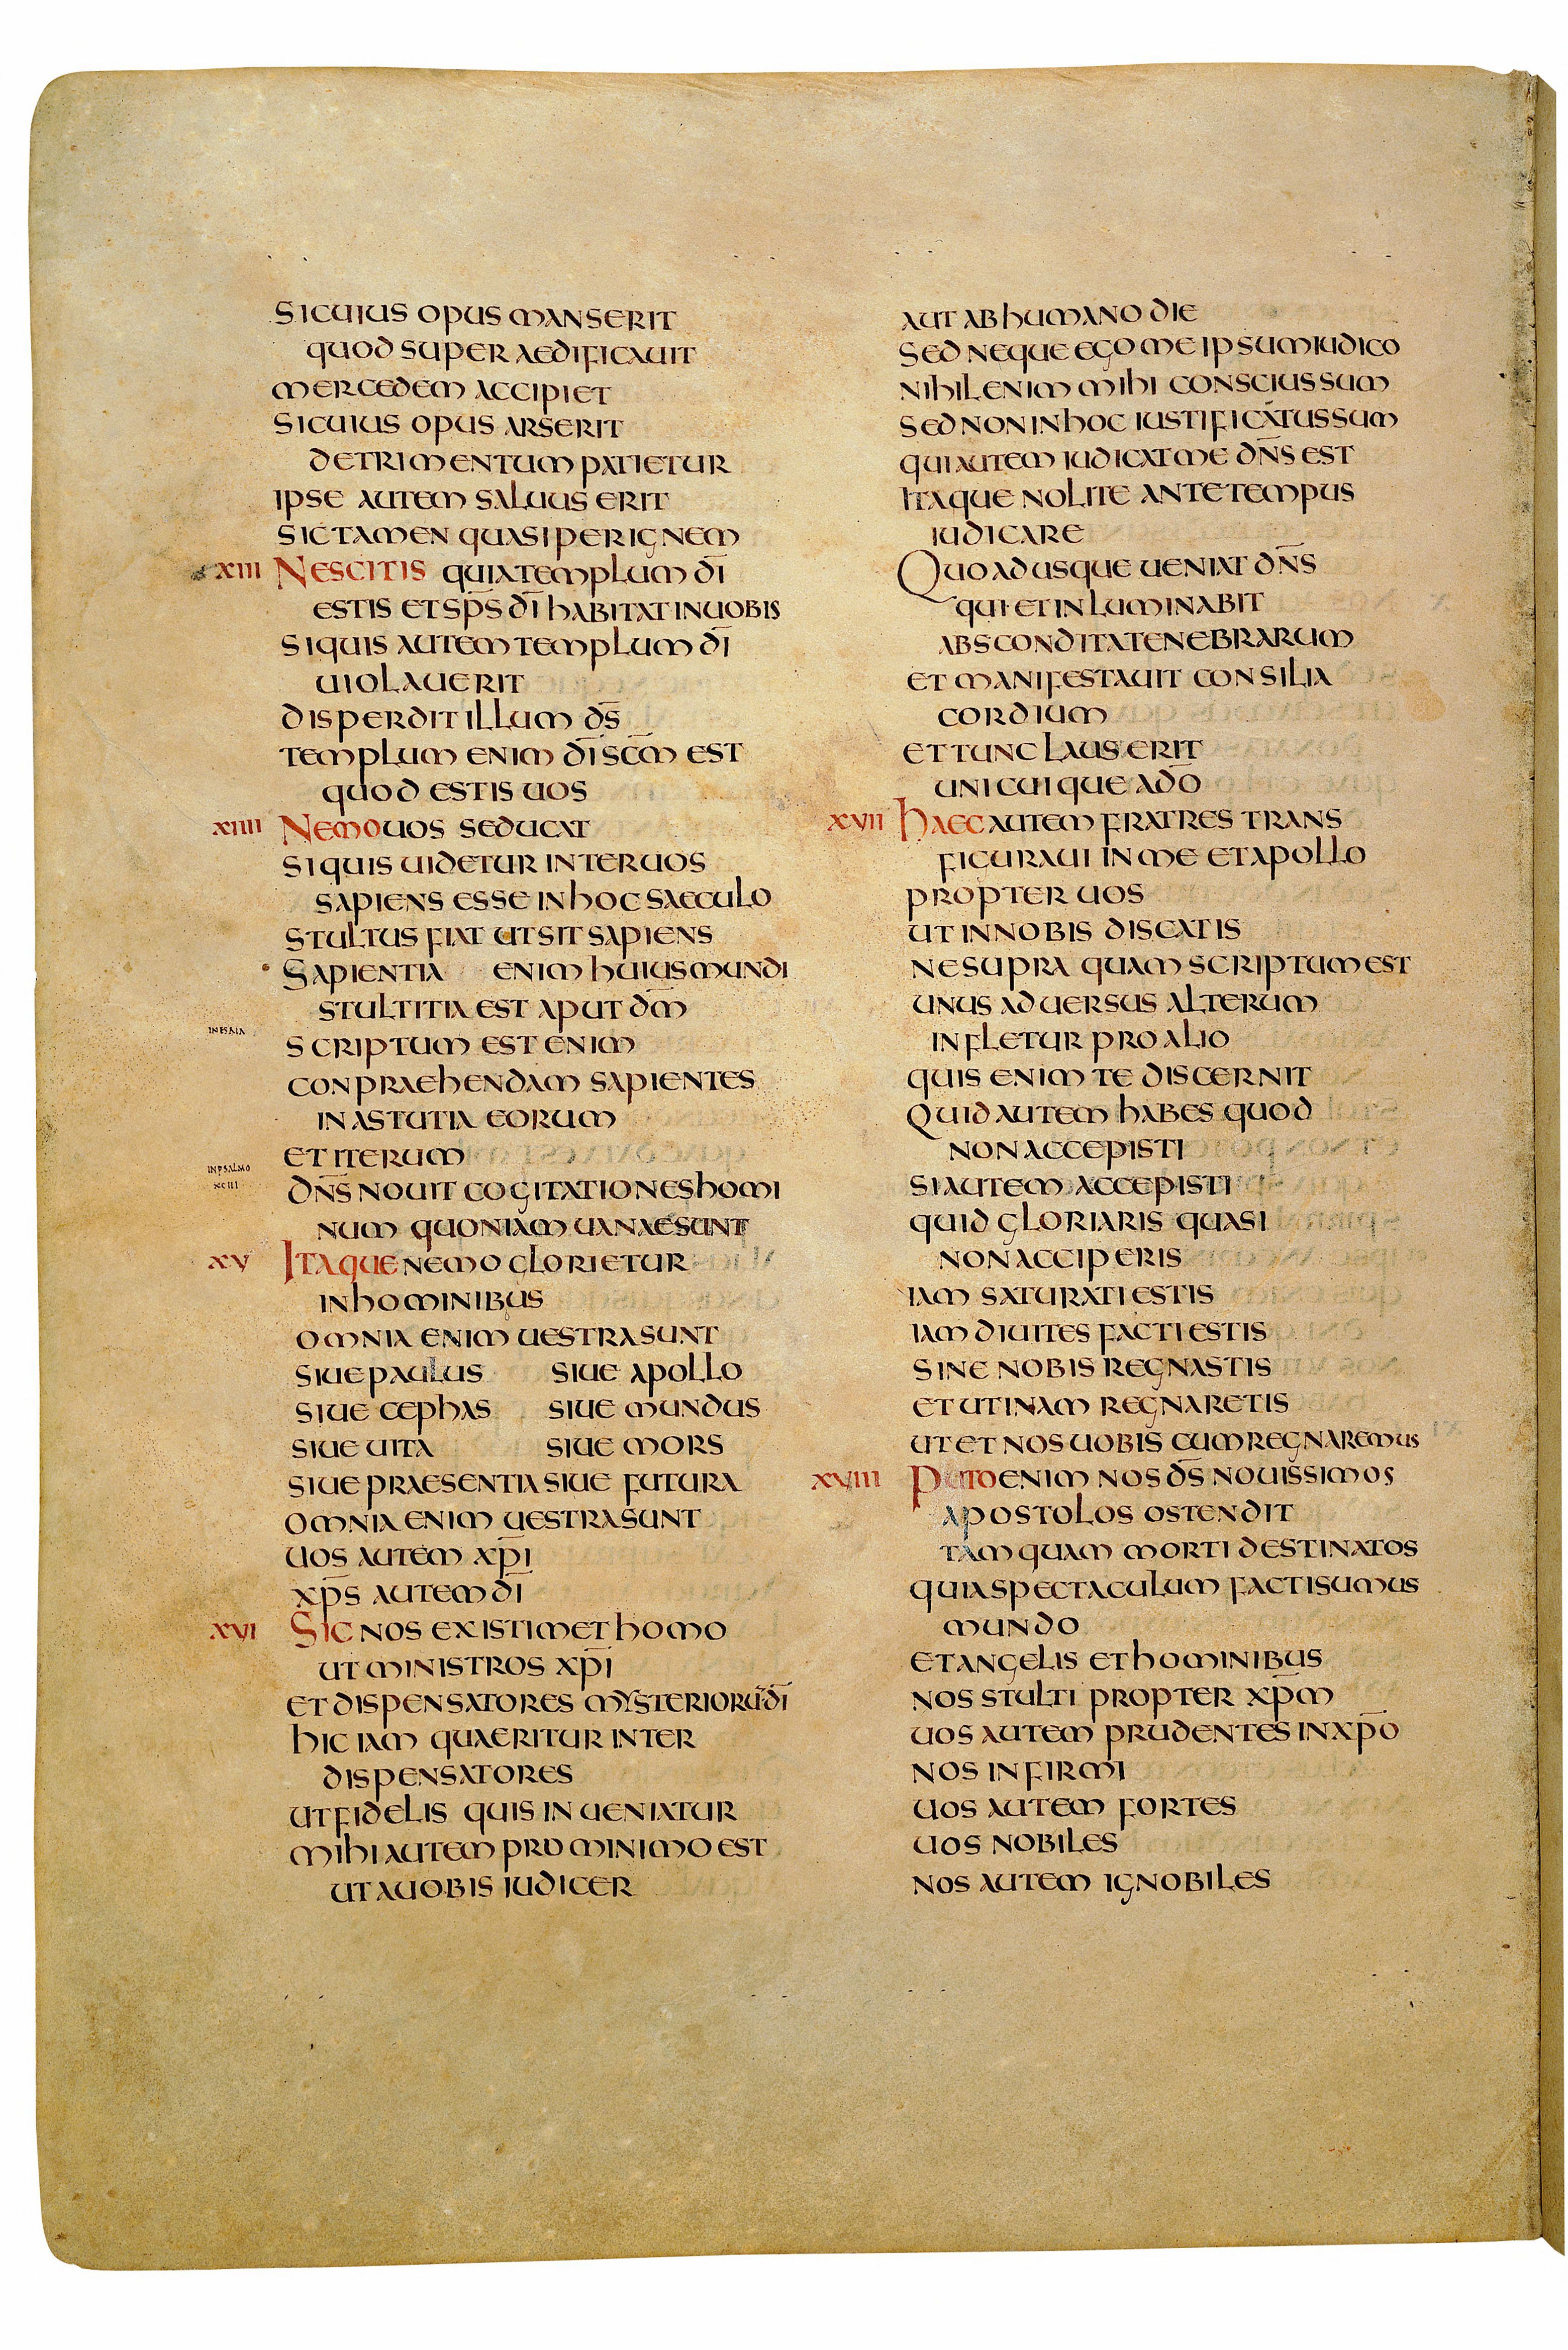 SI CUIUS OPUS MANSERIT
QUOD SUPER AEDIFICAUIT
MERCEDEM ACCIPIET
SI CUIUS OPUS ARSERIT
DETRIMENTUM PATIETUR
IPSE AUTEM SALUUS ERIT
SIC TAMEN QUASI PER IGNEM
XIII NESCITIS QUIA TEMPLUM DĪ
ESTIS ET SP̄S DĪ HABITAT IN UOBIS
SI QUIS AUTEM TEMPLUM DĪ
UIOLAUERIT
DISPERDIT ILLUM D̄S
TEMPLUM ENIM DĪ SC̄M EST
QUOD ESTIS UOS
XIIII NEMO UOS SEDUCAT
SI QUIS UIDETUR INTER UOS
SAPIENS ESSE IN HOC SAECULO
STULTUS FIAT UT SIT SAPIENS
SAPIENTIA ENIM HUIUS MUNDI
STULTITIA EST APUT D̄M
IN ESAIA
SCRIPTUM EST ENIM
CONPRAEHENDAM SAPIENTES
IN ASTUTIA EORUM
ET ITERUM
IN PSALMO
XCIII
DN̄S NOUIT COGITATIONES HOMI
NUM QUONIAM UANAE SUNT
XV ITAQUE NEMO GLORIETUR
IN HOMINIBUS
OMNIA ENIM UESTRA SUNT
SIUE PAULUS SIUE APOLLO
SIUE CEPHAS SIUE MUNDUS
SIUE UITA SIUE MORS
SIUE PRAESENTIA SIUE FUTURA
OMNIA ENIM UESTRA SUNT
UOS AUTEM XP̄I
XP̄S AUTEM DĪ
XVI SIC NOS EXISTIMET HOMO
UT MINISTROS XP̄I
ET DISPENSATORES MYSTERIORŪ DĪ
HIC IAM QUAERITUR INTER
DISPENSATORES
UT FIDELIS QUIS INUENIATUR
MIHI AUTEM PRO MINIMO EST
UT A UOBIS IUDICER
AUT AB HUMANO DIE
SED NEQUE EGO ME IPSUM IUDICO
NIHIL ENIM MIHI CONSCIUS SUM
SED NON IN HOC IUSTIFICATUS SUM
QUI AUTEM IUDICAT ME DN̄S EST
ITAQUE NOLITE ANTE TEMPUS
IUDICARE
QUOADUSQUE UENIAT DN̄S
QUI ET INLUMINABIT
ABSCONDITA TENEBRARUM
ET MANIFESTAUIT CONSILIA
CORDIUM
ET TUNC LAUS ERIT
UNICUIQUE A DŌ
XVII HAEC AUTEM FRATRES TRANS
FIGURAUI IN ME ET APOLLO
PROPTER UOS
UT IN NOBIS DISCATIS
NE SUPRA QUAM SCRIPTUM EST
UNUS ADUERSUS ALTERUM
INFLETUR PRO ALIO
QUIS ENIM TE DISCERNIT
QUID AUTEM HABES QUOD
NON ACCEPISTI
SI AUTEM ACCEPISTI
QUID GLORIARIS QUASI
NON ACCIPERIS
IAM SATURATI ESTIS
IAM DIUITES FACTI ESTIS
SINE NOBIS REGNASTIS
ET UTINAM REGNARETIS
UT ET NOS UOBISCUM REGNAREMUS
XVIII PUTO ENIM NOS D̄S NOUISSIMOS
APOSTOLOS OSTENDIT
TAMQUAM MORTI DESTINATOS
QUIA SPECTACULUM FACTI SUMUS
MUNDO
ET ANGELIS ET HOMINIBUS
NOS STULTI PROPTER XP̄M
UOS AUTEM PRUDENTES IN XP̄O
NOS INFIRMI
UOS AUTEM FORTES
UOS NOBILES
NOS AUTEM IGNOBILES